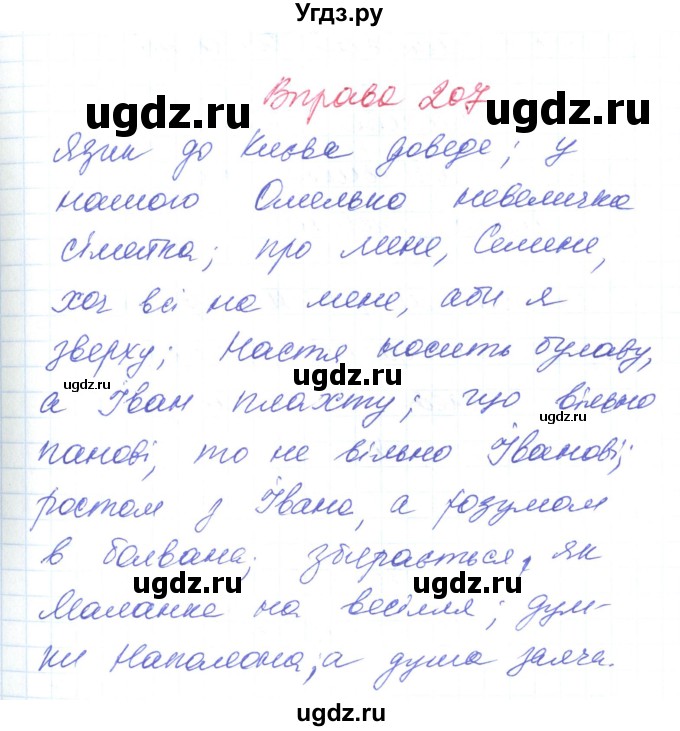 Угдз.ру
Вправа 207
ugdz.ru ugdz.ru
Язик до Києва доведе; у
нашого Омелько невеличка
сімейка; про мене, Семене,
ugdz.ru
хоч всі на мене, аби я
зверху; Настя носить булаву,
ugdz.ru ugdz.ru
а Іван плахту; що вільно
ugdz.ru
панові, то не вільно Іванові;
ростом з Івана, а розумом
в болвана; збирається, як
ugdz.ru ugdz.ru
Маланка на весілля; дум-
ки Наполеона, а душа заяча.
ugdz.ru